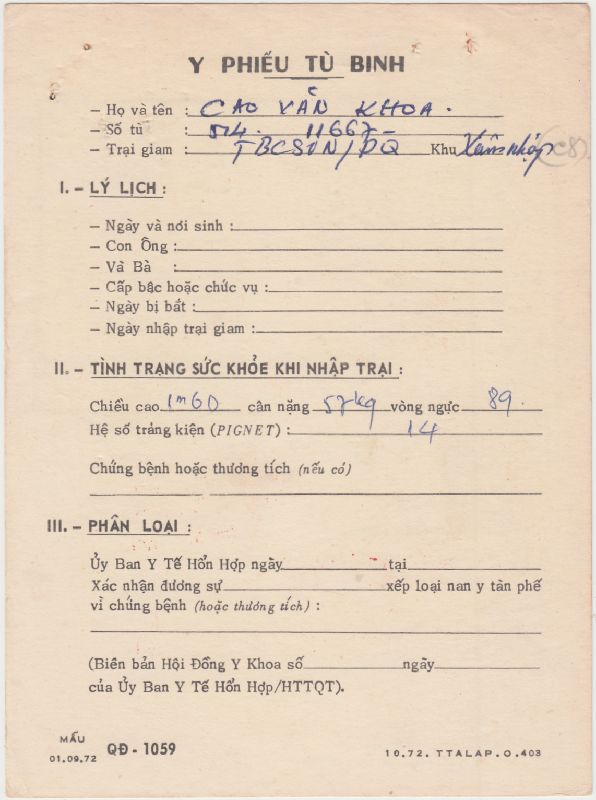 Y PHIẾU TÙ BINH
– Họ và tên : CAO VĂN KHOA.
– Số tù : 11667-
– Trại giam : TBCSVN/PQ Khu (C8)
I. – LÝ LỊCH :
– Ngày và nơi sinh :
– Con Ông :
– Và Bà :
– Cấp bậc hoặc chức vụ :
– Ngày bị bắt :
– Ngày nhập trại giam :
II. – TÌNH TRẠNG SỨC KHỎE KHI NHẬP TRẠI :
Chiều cao 1m60 cân nặng 57kg vòng ngực 89.
Hệ số tráng kiện (PIGNET) : 14
Chứng bệnh hoặc thương tích (nếu có)
III. – PHÂN LOẠI :
Ủy Ban Y Tế Hổn Hợp ngày tại
Xác nhận đương sự xếp loại nan y tàn phế
vì chứng bệnh (hoặc thương tích) :
(Biên bản Hội Đồng Y Khoa số ngày
của Ủy Ban Y Tế Hổn Hợp/HTTQT).
MẪU
01.09.72 QĐ - 1059
10.72. TTALAP.O.403